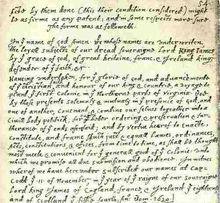 by them done (this their condition considered) might
be as firme as any patent; and in some respects more sure.
The forme was as followeth.
In yᵉ name of god Amen. We whose names are underwriten,
the loyall subjects of our dread soveraigne Lord King James
by yᵉ grace of god, of great Britaine, franc, & Ireland king,
defender of yᵉ faith, &c
Haveing undertaken, for yᵉ glorie of god, and advancemente
of yᵉ christian faith and honour of our king & countrie, a voyage to
plant yᵉ first colonie in yᵉ Northerne parts of Virginia. Doe
by these presents solemnly & mutualy in yᵉ presence of god, and
one of another, covenant, & combine our selves togeather into a
civill body politick; for yᵉ better ordering, & preservation & fur=
therance of yᵉ ends aforesaid; and by vertue hearof to enacte,
constitute, and frame such just & equall lawes, ordinances,
Acts, constitutions, & offices, from time to time, as shall be thought
most meete & convenient for yᵉ generall good of yᵉ Colonie: unto
which we promise all due submission and obedience. In witnes
wherof we have hereunder subscribed our names at Cap=
Codd yᵉ .11. of November, in yᵉ year of yᵉ raigne of our soveraigne
Lord king James of England, france, & Ireland yᵉ eighteenth
and of Scotland yᵉ fiftie fourth. Anᵒ: Dom. 1620.